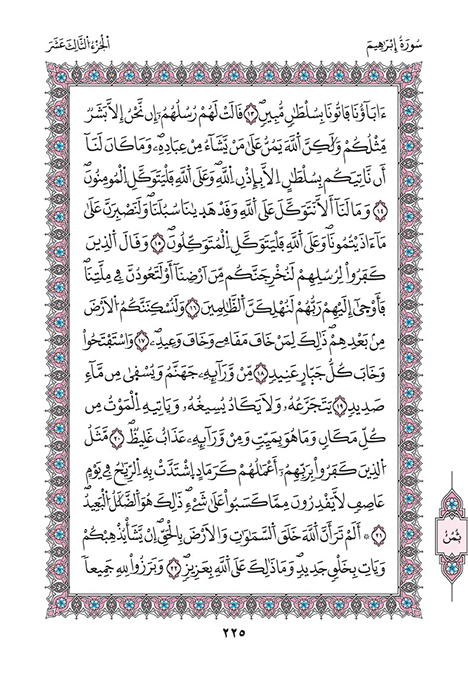 سُورَةُ إِبْرَٰهِيمَ
اَلْجُزْءُ الثَّالِثَ عَشَرَ
ءَابَآؤُنَا فَاتُونَا بِسُلْطَٰنٖ مُّبِينٖۖ ١٣ قَالَتْ لَهُمْ رُسُلُهُمُۥٓ إِن نَّحْنُ إِلَّا بَشَرٞ
مِّثْلُكُمْ وَلَٰكِنَّ اَللَّهَ يَمُنُّ عَلَىٰ مَنْ يَّشَآءُ مِنْ عِبَادِهِۦۖ وَمَا كَانَ لَنَآ
أَن نَّاتِيَكُم بِسُلْطَٰنٍ اِلَّا بِإِذْنِ اِللَّهِۖ وَعَلَى اَللَّهِ فَلْيَتَوَكَّلِ اِلْمُومِنُونَۖ
١٤ وَمَا لَنَآ أَلَّا نَتَوَكَّلَ عَلَى اَللَّهِ وَقَدْ هَدَىٰنَا سُبُلَنَاۖ وَلَنَصْبِرَنَّ عَلَىٰ
مَآ ءَاذَيْتُمُونَاۖ وَعَلَى اَللَّهِ فَلْيَتَوَكَّلِ اِلْمُتَوَكِّلُونَۖ ١٥ وَقَالَ اَلذِينَ
كَفَرُواْ لِرُسُلِهِمْ لَنُخْرِجَنَّكُم مِّنَ اَرْضِنَآ أَوْ لَتَعُودُنَّ فِے مِلَّتِنَاۖ
فَأَوْح۪ىٰٓ إِلَيْهِمْ رَبُّهُمْ لَنُهْلِكَنَّ اَلظَّٰلِمِينَ ١٦ وَلَنُسْكِنَنَّكُمُ اُلَارْضَ
مِنۢ بَعْدِهِمْۖ ذَٰلِكَ لِمَنْ خَافَ مَقَامِے وَخَافَ وَعِيدِۦۖ ١٧ وَاسْتَفْتَحُواْ
وَخَابَ كُلُّ جَبّ۪ارٍ عَنِيدٖۖ ١٨ مِّنْ وَّرَآئِهِۦ جَهَنَّمُ وَيُسْقَىٰ مِن مَّآءٖ
صَدِيدٖۖ ١٩ يَتَجَرَّعُهُۥ وَلَا يَكَادُ يُسِيغُهُۥۖ وَيَاتِيهِ اِلْمَوْتُ مِن
كُلِّ مَكَانٖ وَمَا هُوَ بِمَيِّتٖۖ وَمِنْ وَّرَآئِهِۦ عَذَابٌ غَلِيظٞۖ ٢٠ مَّثَلُ
اُلذِينَ كَفَرُواْ بِرَبِّهِمُۥٓ أَعْمَٰلُهُمْ كَرَمَادٍ اِشْتَدَّتْ بِهِ اِلرِّيَٰحُ فِے يَوْمٍ
عَاصِفٖ لَّا يَقْدِرُونَ مِمَّا كَسَبُواْ عَلَىٰ شَےْءٖۖ ذَٰلِكَ هُوَ اَلضَّلَٰلُ اُلْبَعِيدُۖ
٢١ ۞ أَلَمْ تَرَ أَنَّ اَللَّهَ خَلَقَ اَلسَّمَٰوَٰتِ وَالَارْضَ بِالْحَقِّۖ إِنْ يَّشَأْ يُذْهِبْكُمْ
وَيَاتِ بِخَلْقٖ جَدِيدٖۖ وَمَا ذَٰلِكَ عَلَى اَللَّهِ بِعَزِيزٖۖ ٢٢ وَبَرَزُواْ لِلهِ جَمِيعاٗ
ثُمُنْ
٢٢٥